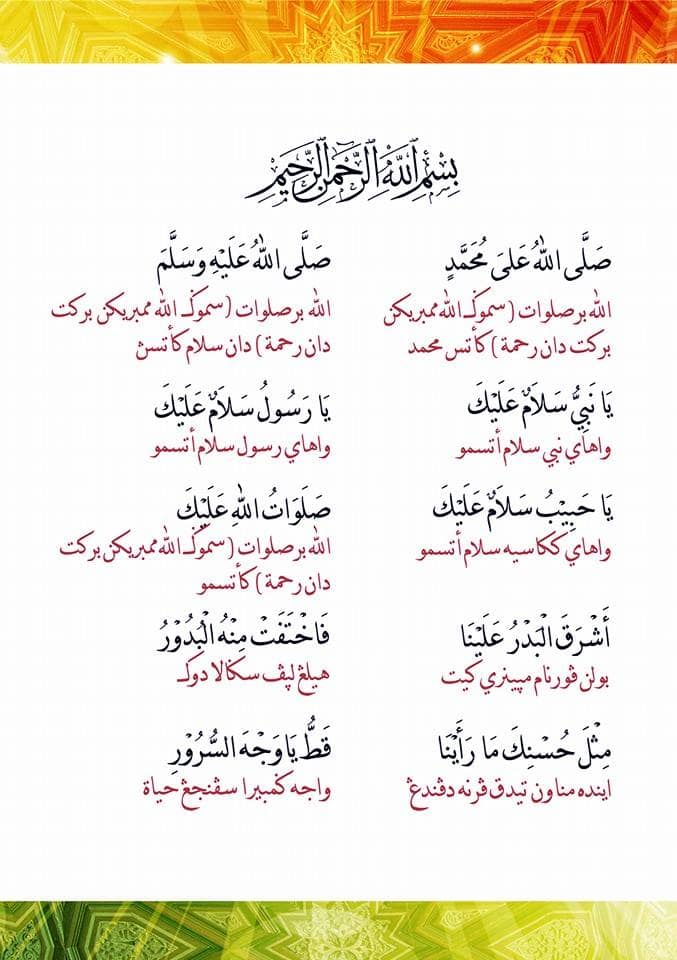 بِسْمِ ٱللَّهِ ٱلرَّحْمَٰنِ ٱلرَّحِيمِ
صَلَّى اللهُ عَلىَ مُحَمَّدٍ
الله برصلوات (سموݢـ الله ممبريكن
بركت دان رحمة) كأتس محمد
صَلَّى اللهُ عَلَيْهِ وَسَلَّمَ
الله برصلوات (سموݢـ الله ممبريكن بركت
دان رحمة) دان سلام كأتسڽ
يَا نَبِيُّ سَلاَمٌ عَلَيْكَ
واهاي نبي سلام أتسمو
يَا رَسُولُ سَلاَمٌ عَلَيْكَ
واهاي رسول سلام أتسمو
يَا حَبِيْبُ سَلاَمٌ عَلَيْكَ
واهاي ككاسيه سلام أتسمو
صَلَوَاتُ اللهِ عَلَيْكَ
الله برصلوات (سموݢـ الله ممبريكن بركت
دان رحمة) كأتسمو
أَشْرَقَ الْبَدْرُ عَلَيْنَا
بولن ڤورنام مڽينري كيت
فَاخْتَفَتْ مِنْهُ الْبُدُوْرُ
هيلڠ لڽڤ سݢالا دوكـ
مِثْلَ حُسْنِكَ مَا رَأَيْنَا
اينده مناون تيدق ڤرنه دڤندڠ
قَطُّ يَا وَجْهَ السُّرُوْرِ
واجه ݢمبيرا سڤنجڠ حياة